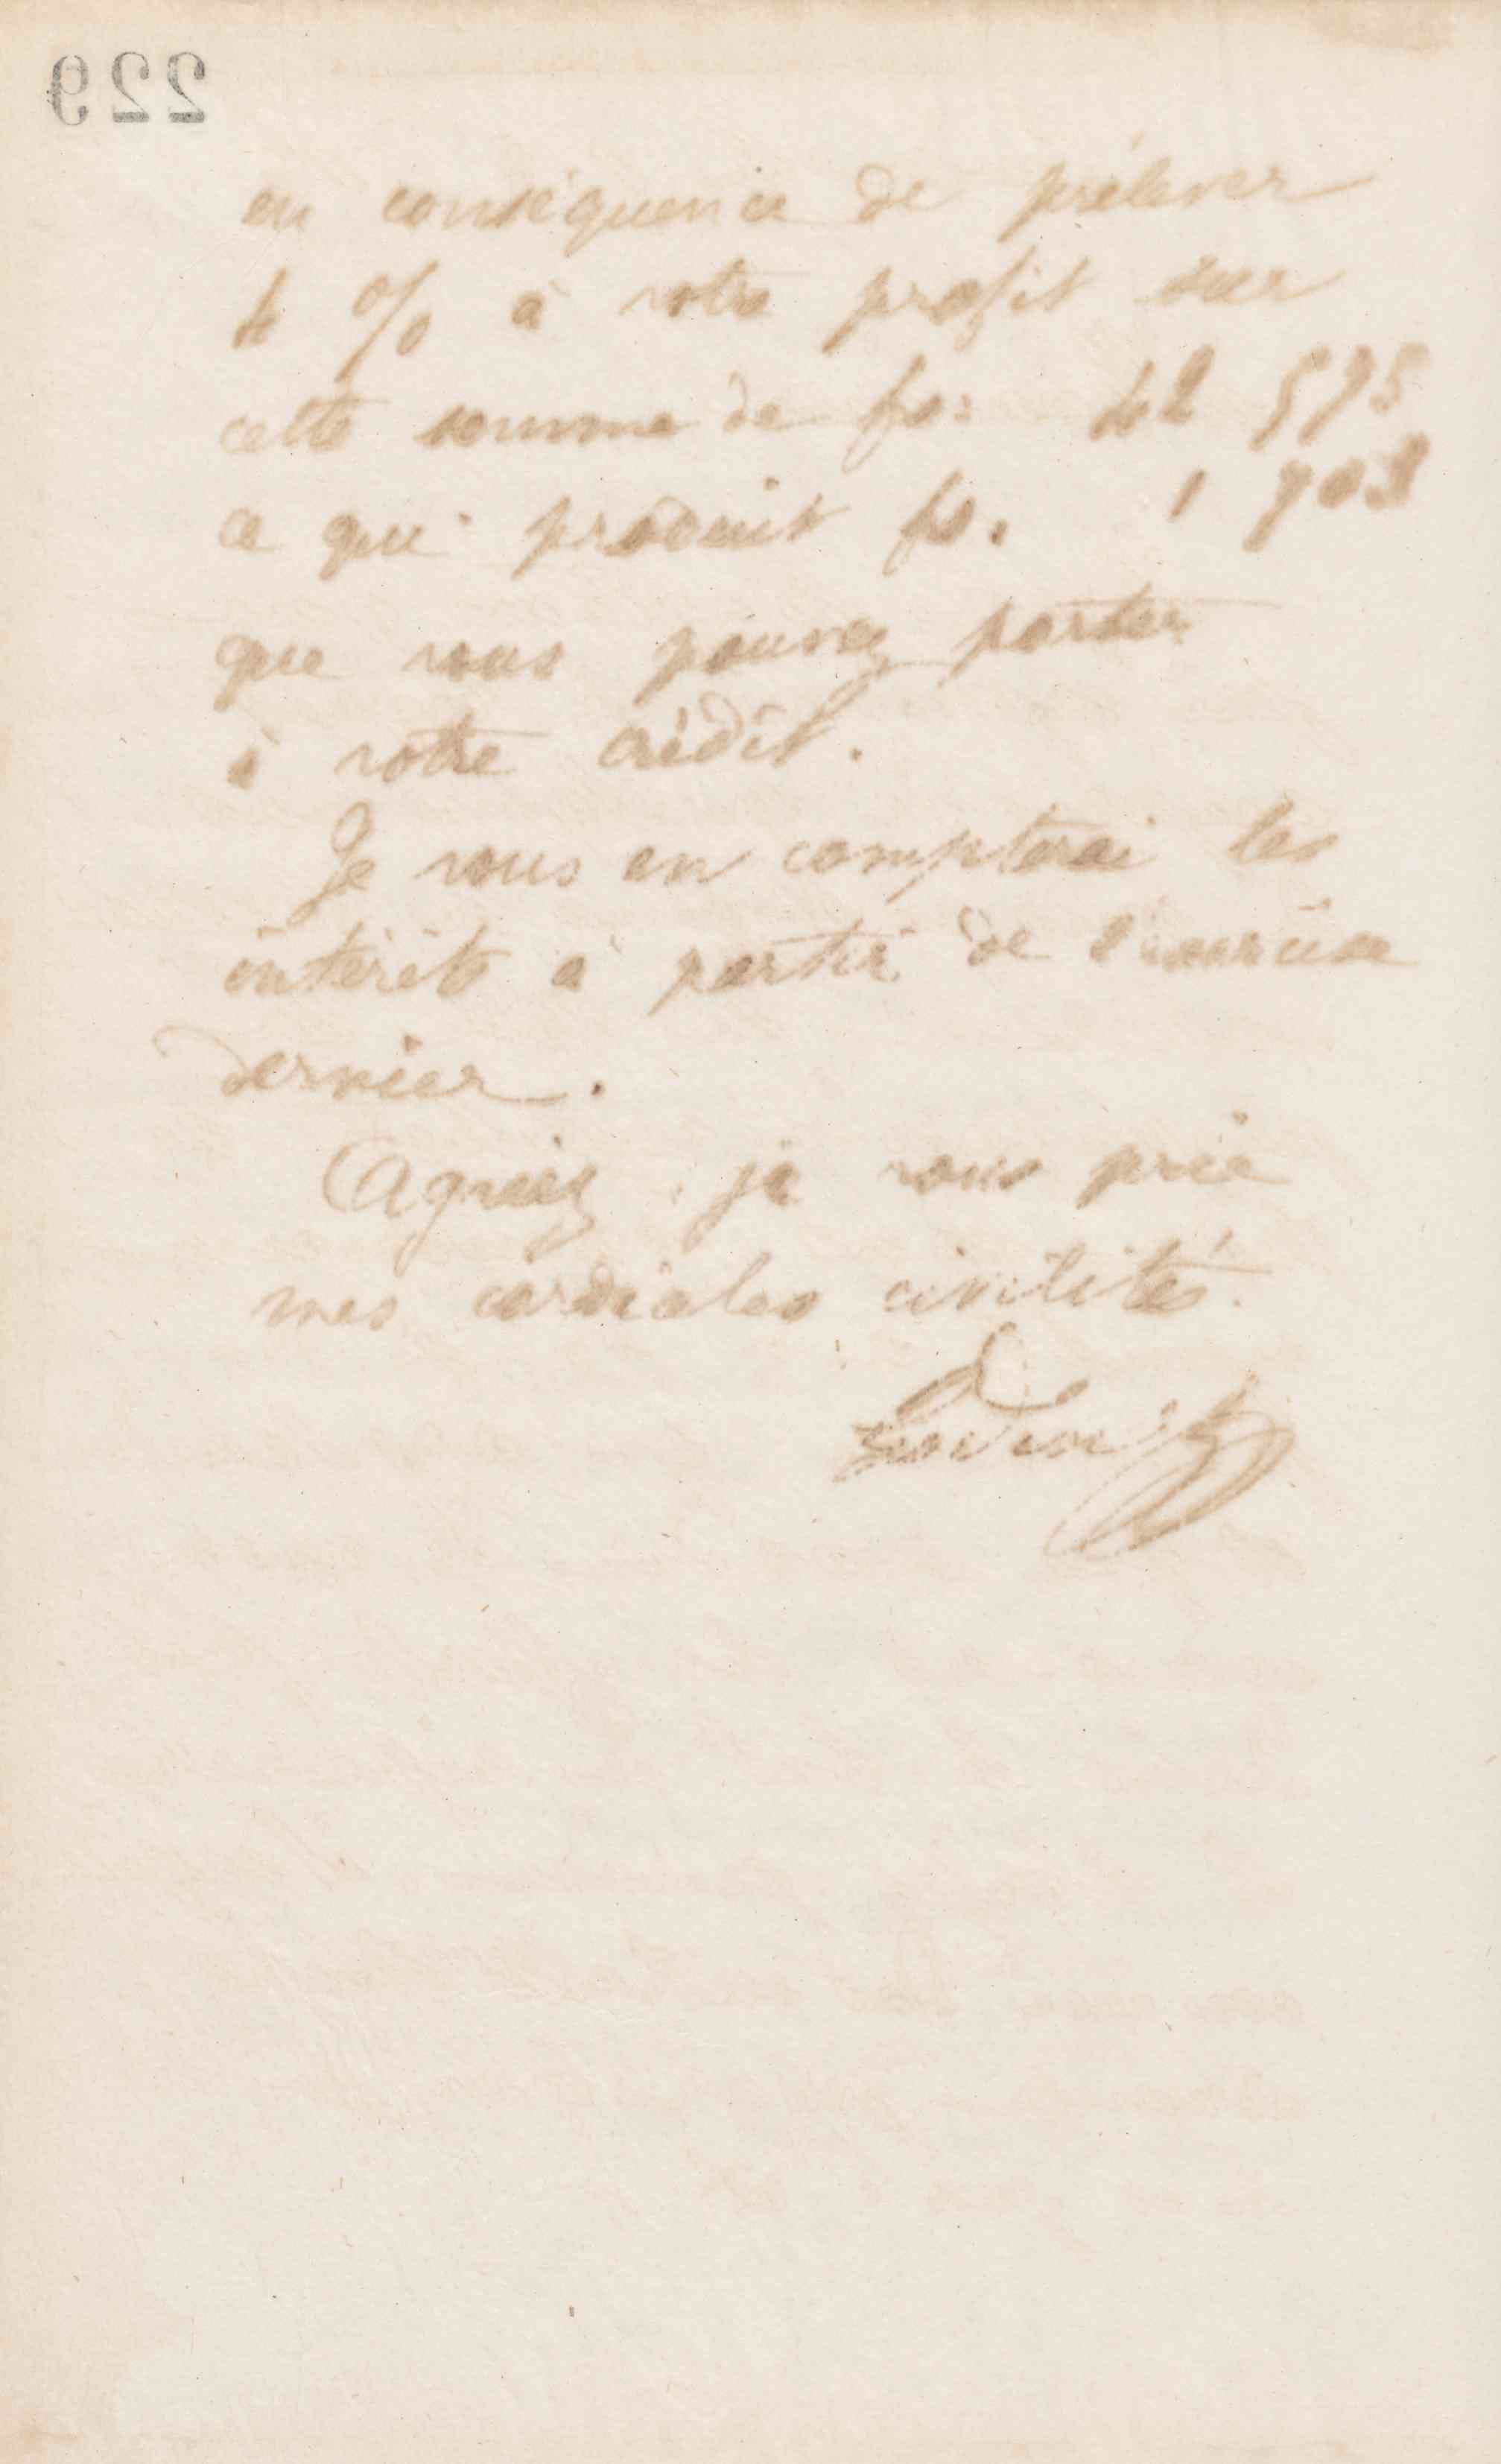 229
en conséquence de prélever
4 % à votre profit sur
cette somme de fs: 42 575
ce qui produit fs. 1 703
que vous pouvez porter
à votre crédit.
Je vous en compterai les
intérêts à partir de l'exercice
dernier.
Agréez je vous prie
mes cordiales civilités.
Godin